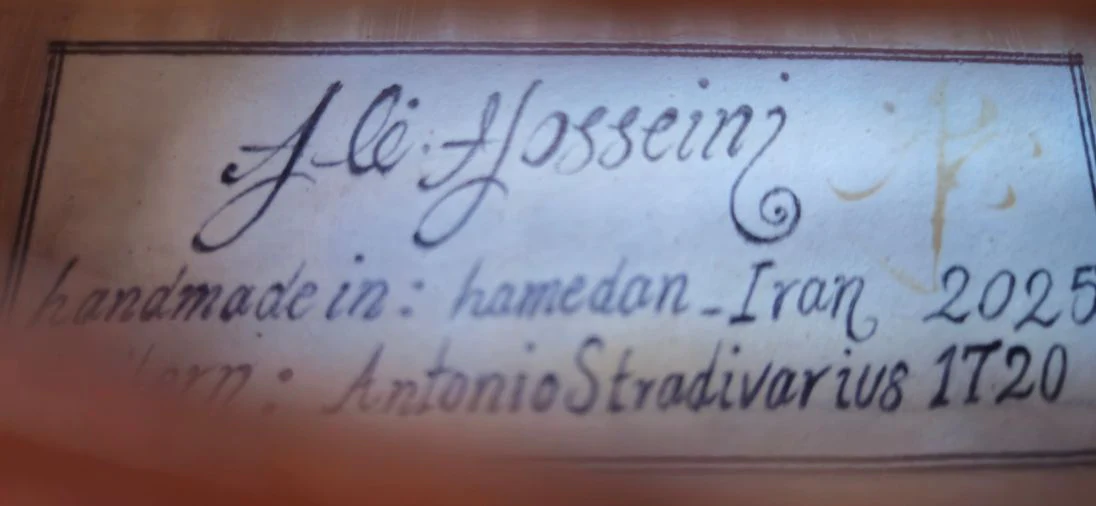 Ali Hosseini
handmade in: hamedan_Iran 2025
: Antonio Stradivarius 1720